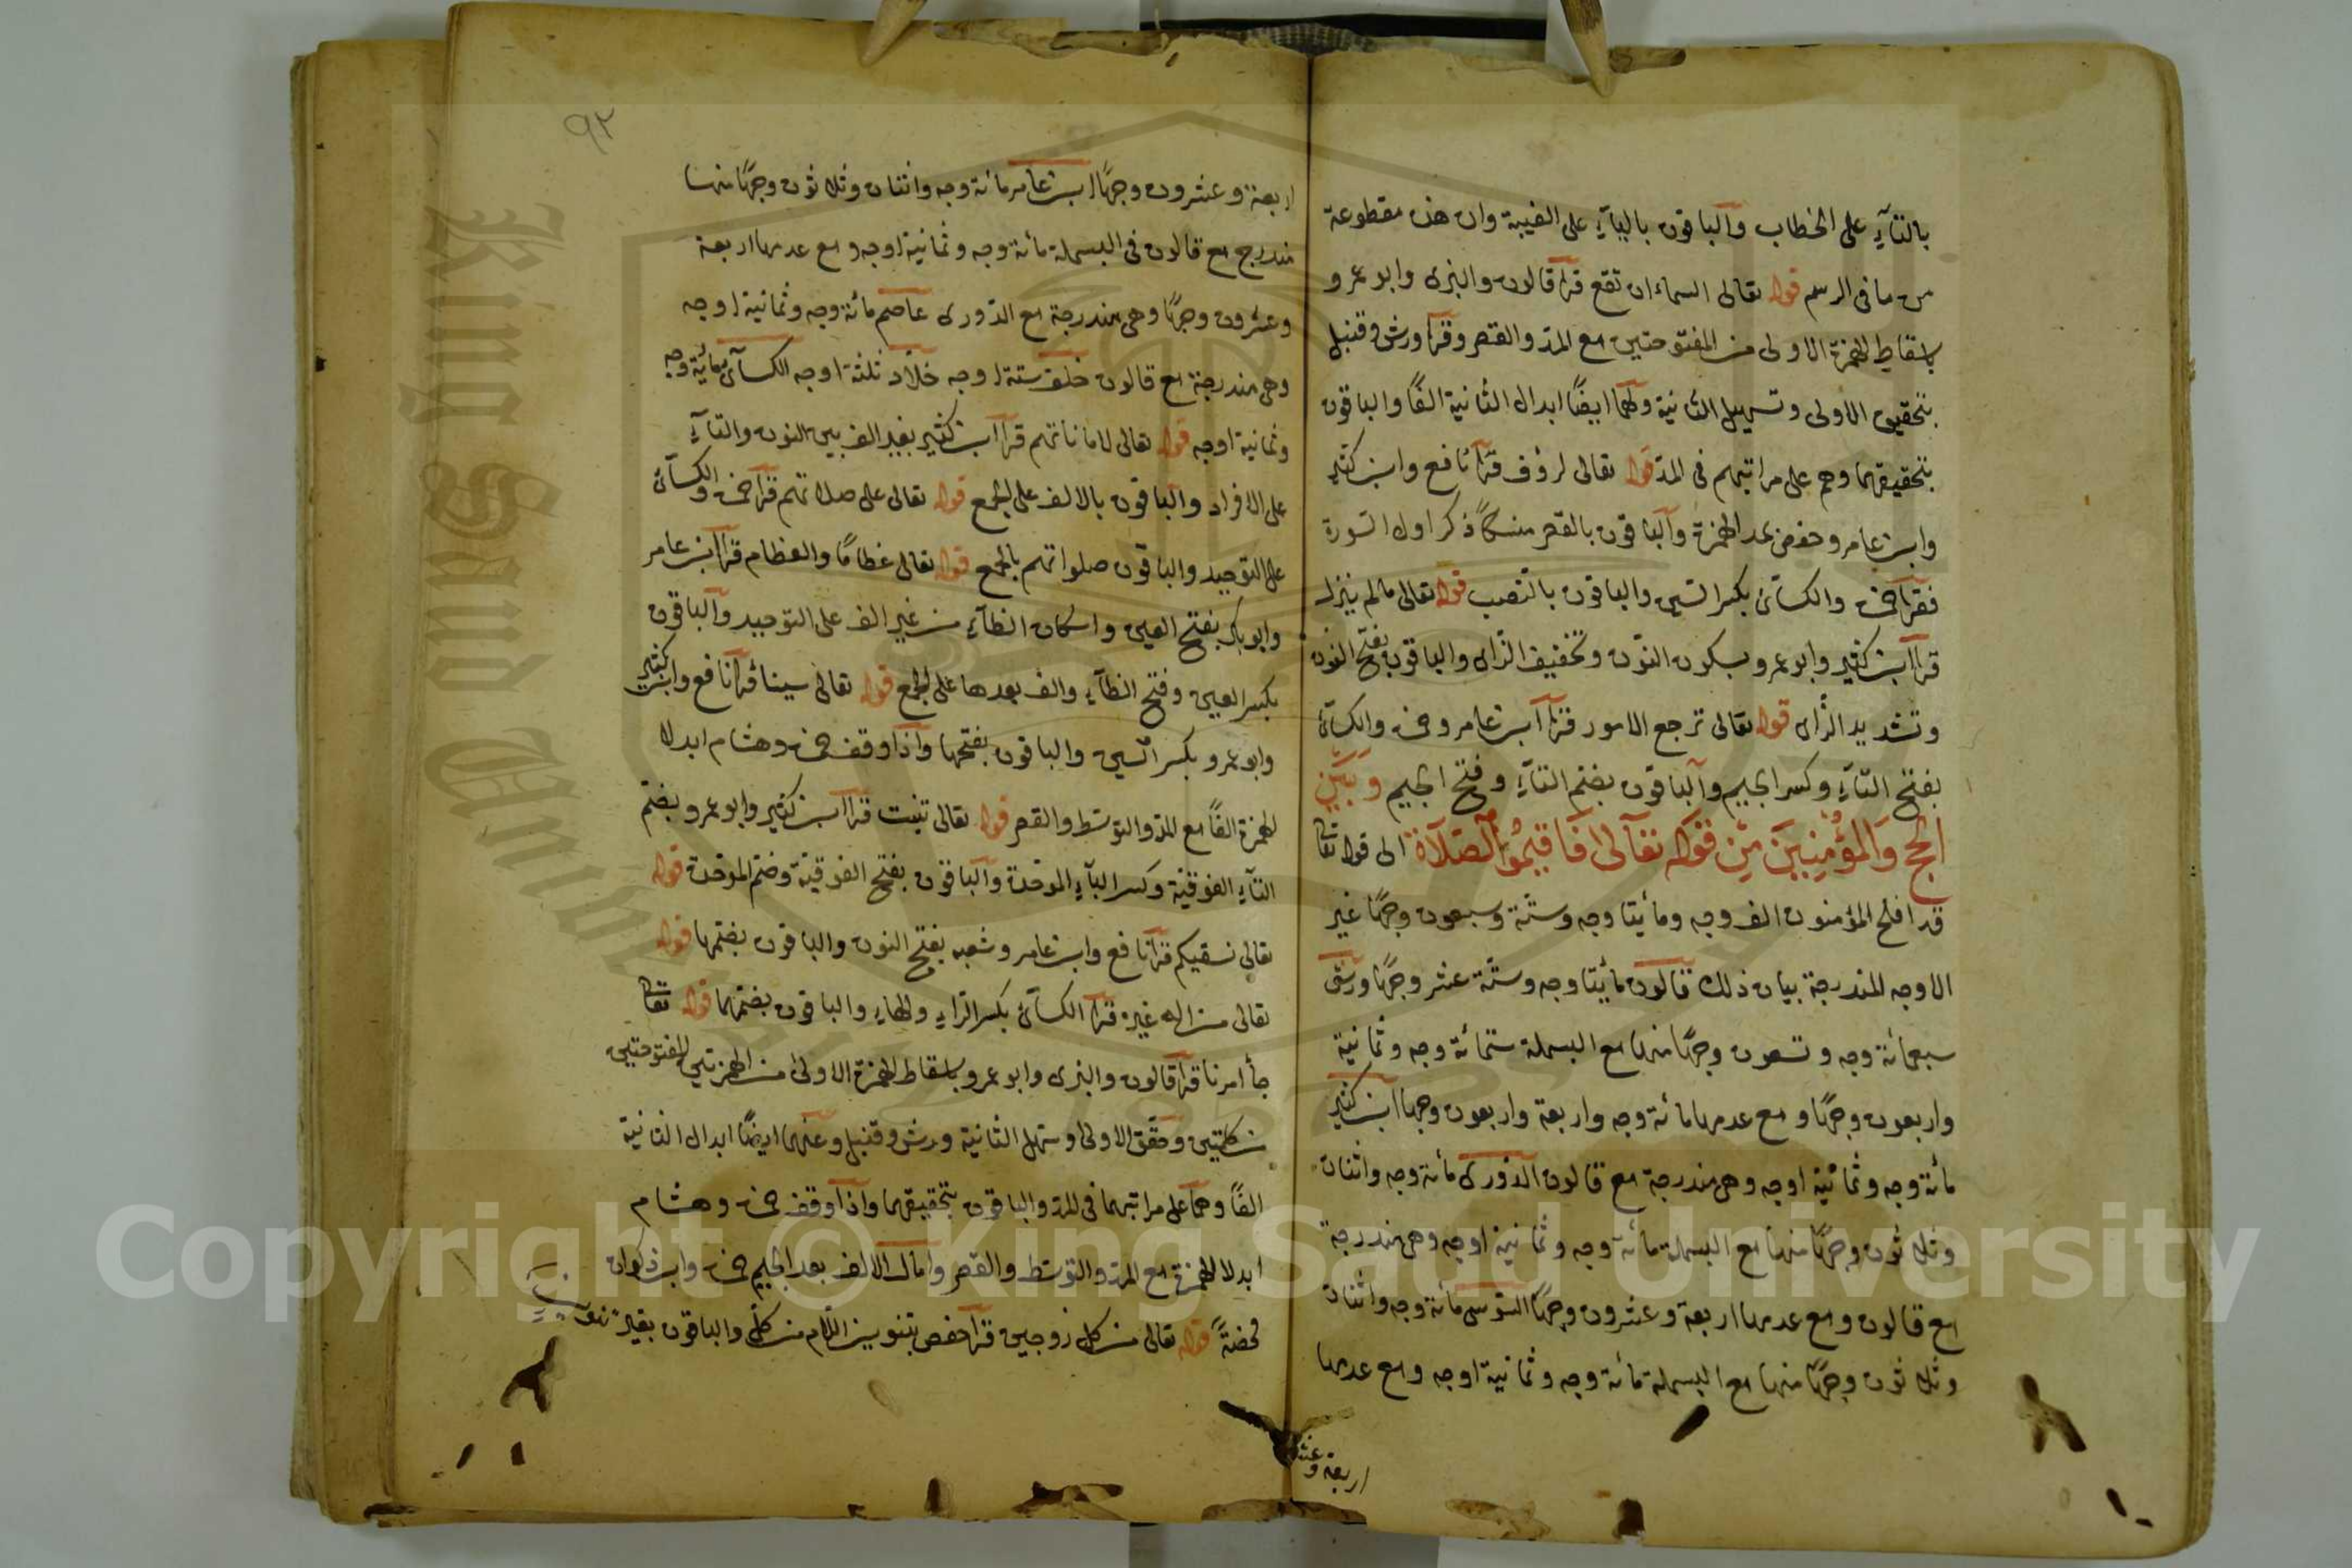 بالتآءِ على الخطاب والباقون باليآءِ على الغيبة وان هذه مقطوعة
من ما فى الرسم قوله تعالى السماء ان تقع قرا قالون والبزى وابو عمرو
باسقاط الهمزة الاولى من المفتوحتين مع المد والقصر وقرا ورش وقنبل
بتحقيق الاولى وتسهيل الثانية ولهما ايضًا ابدال الثانية الفًا والباقون
بتحقيقهما وهم على مراتبهم فى المد قوله تعالى لرؤف قرأ نافع وابن كثير
وابن عامر وحفص بمد الهمزة والباقون بالقصر منسكًا ذكر اول السورة
فقرأ حمزة والكسآئى بكسر السين والباقون بالنصب قوله تعالى مالم ينزل
قرا ابن كثير وابو عمرو بسكون النون وتخفيف الزاى والباقون بفتح النون
وتشديد الزاى قوله تعالى ترجع الامور قرا ابن عامر وحمزة والكسآئى
بفتح التآءِ وكسر الجيم والباقون بضم التآءِ وفتح الجيم وَبَيْنَ
الحج وَالمؤمِنِينَ مِن قوله تعَالى فَاقيمُوا الصَّلَاةَ الى قوله تعالى
قد افلح المؤمنون الف وجه ومائيتا وجه وستة وسبعون وجهًا غير
الاوجه المندرجة بيان ذلك قالون مائيتا وجه وستة عشر وجهًا ورش
سبعمائة وجه وتسعون وجهًا منها مع البسملة ستمائة وجه وثمانية
واربعون وجهًا ومع عدمها مائة وجه واربعة واربعون وجها ابن كثير
مائة وجه وثمانية اوجه وهى مندرجة مع قالون الدورى مائة وجه واثنان
وثلاثون وجهًا منها مع البسملة مائة وجه وثمانية اوجه وهى مندرجة
مع قالون ومع عدمها اربعة وعشرون وجهًا السوسى مائة وجه واثنان
وثلاثون وجهًا منها مع البسملة مائة وجه وثمانية اوجه ومع عدمها
اربعة وعشر
٩٣
اربعة وعشرون وجهًا ابن عامر مائة وجه واثنان وثلاثون وجهًا منها
مندرج مع قالون فى البسملة مائة وجه وثمانية اوجه ومع عدمها اربعة
وعشرون وجهًا وهى مندرجة مع الدورى عاصم مائة وجه وثمانية اوجه
وهى مندرجة مع قالون خلف ستة اوجه خلاد ثلثة اوجه الكسآئى مائة وجه
وثمانية اوجه قوله تعالى لاماناتهم قرا ابن كثير بغير الف بين النون والتآءِ
على الافراد والباقون بالالف على الجمع قوله تعالى على صلاتهم قرا حمزة والكسآئى
على التوحيد والباقون صلواتهم بالجمع قوله تعالى عظامًا والعظام قرا ابن عامر
وابو بكر بفتح العين واسكان الظآءِ من غير الف على التوحيد والباقون
بكسر العين وفتح الظآءِ والف بعدها على الجمع قوله تعالى سينا قرا نافع وابن كثير
وابو عمرو بكسر السين والباقون بفتحها واذا وقف حمزة وهشام ابدلا
الهمزة الفًا مع المد والتوسط والقصر قوله تعالى تنبت قرا ابن كثير وابو عمرو بضم
التآءِ الفوقية وكسر البآءِ الموحدة والباقون بفتح الفوقية وضم الموحدة قوله
تعالى نسقيكم قرا نافع وابن عامر وشعبه بفتح النون والباقون بضمها قوله
تعالى من اله غيره قرا الكسآئى بكسر الراءِ والهاءِ والباقون بضمهما قوله تعالى
جآ امرنا قرا قالون والبزى وابو عمرو باسقاط الهمزة الاولى من الهمزتين المفتوحتين
من كلمتين وحقق الاولى وسهل الثانية ورش وقنبل وعنهما ايضًا ابدال الثانية
الفًا وهما على مراتبهما فى المد والباقون بتحقيقهما واذا وقف حمزة وهشام
ابدلا الهمزة مع المد والتوسط والقصر وامال الالف بعد الجيم حمزة وابن ذكوان
محضةً قوله تعالى من كل زوجين قرا حفص بتنوين اللام من كلٍّ والباقون بغير تنوين
King Saud University
Copyright © King Saud University